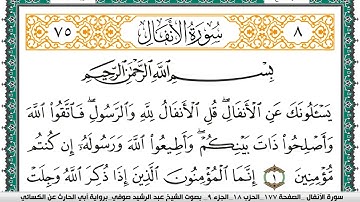 ٧٥ سُورَةُ الْأَنْفَالِ ٨
بِسْمِ اللَّهِ الرَّحْمَٰنِ الرَّحِيمِ
يَسْـَٔلُونَكَ عَنِ الْأَنْفَالِ ۖ قُلِ الْأَنْفَالُ لِلَّهِ وَالرَّسُولِ ۖ فَاتَّقُوا اللَّهَ
وَأَصْلِحُوا ذَاتَ بَيْنِكُمْ ۖ وَأَطِيعُوا اللَّهَ وَرَسُولَهُ إِنْ كُنْتُمْ
مُؤْمِنِينَ ١ إِنَّمَا الْمُؤْمِنُونَ الَّذِينَ إِذَا ذُكِرَ اللَّهُ وَجِلَتْ
سورة الأنفال . الصفحة ١٧٧ الحزب ١٨ الجزء ٩ . بصوت الشيخ عبد الرشيد صوفي برواية أبي الحارث عن الكسائي